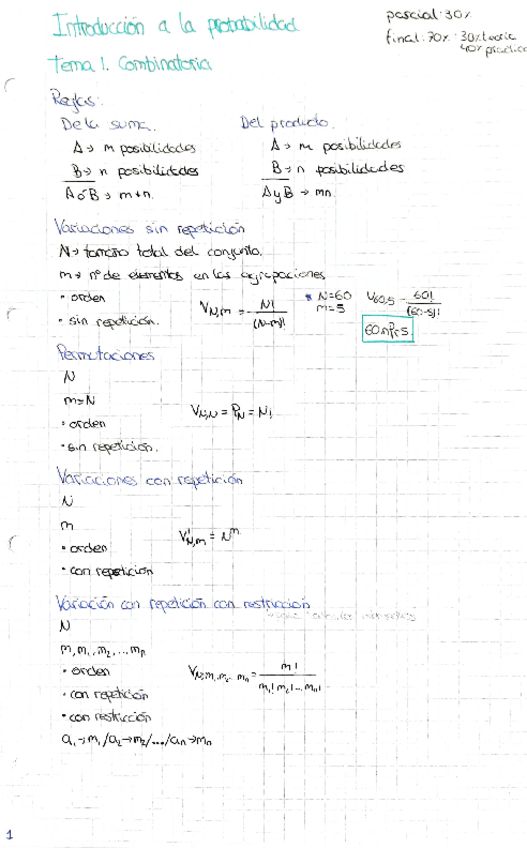 Introducción a la probabilidad
parcial: 30%
final: 70% : 30% teoría
40% práctica
Tema 1. Combinatoria
Reglas:
De la suma.
Del producto.
A → m posibilidades
A → m posibilidades
B → n posibilidades
B → n posibilidades
A o B → m+n.
A y B → mn.
Variaciones sin repetición
N → tamaño total del conjunto.
m → nº de elementos en las agrupaciones
· orden
· sin repetición.
V_{N,m} = N! / (N-m)!
* N=60
m=5
V_{60,5} = 60! / (60-5)!
60 nPr 5
Permutaciones
N
m=N
· orden
· sin repetición.
V_{N,N} = P_N = N!
Variaciones con repetición
N
m
· orden
· con repetición
V'_{N,m} = N^m
Variación con repetición con restricción
N
m, m₁, m₂, ... mₙ
· orden
· con repetición
· con restricción
V_{N; m₁, m₂ ... mₙ} = m! / m₁! m₂! ... mₙ!
a₁→m₁ / a₂→m₂ / ... / aₙ→mₙ
1